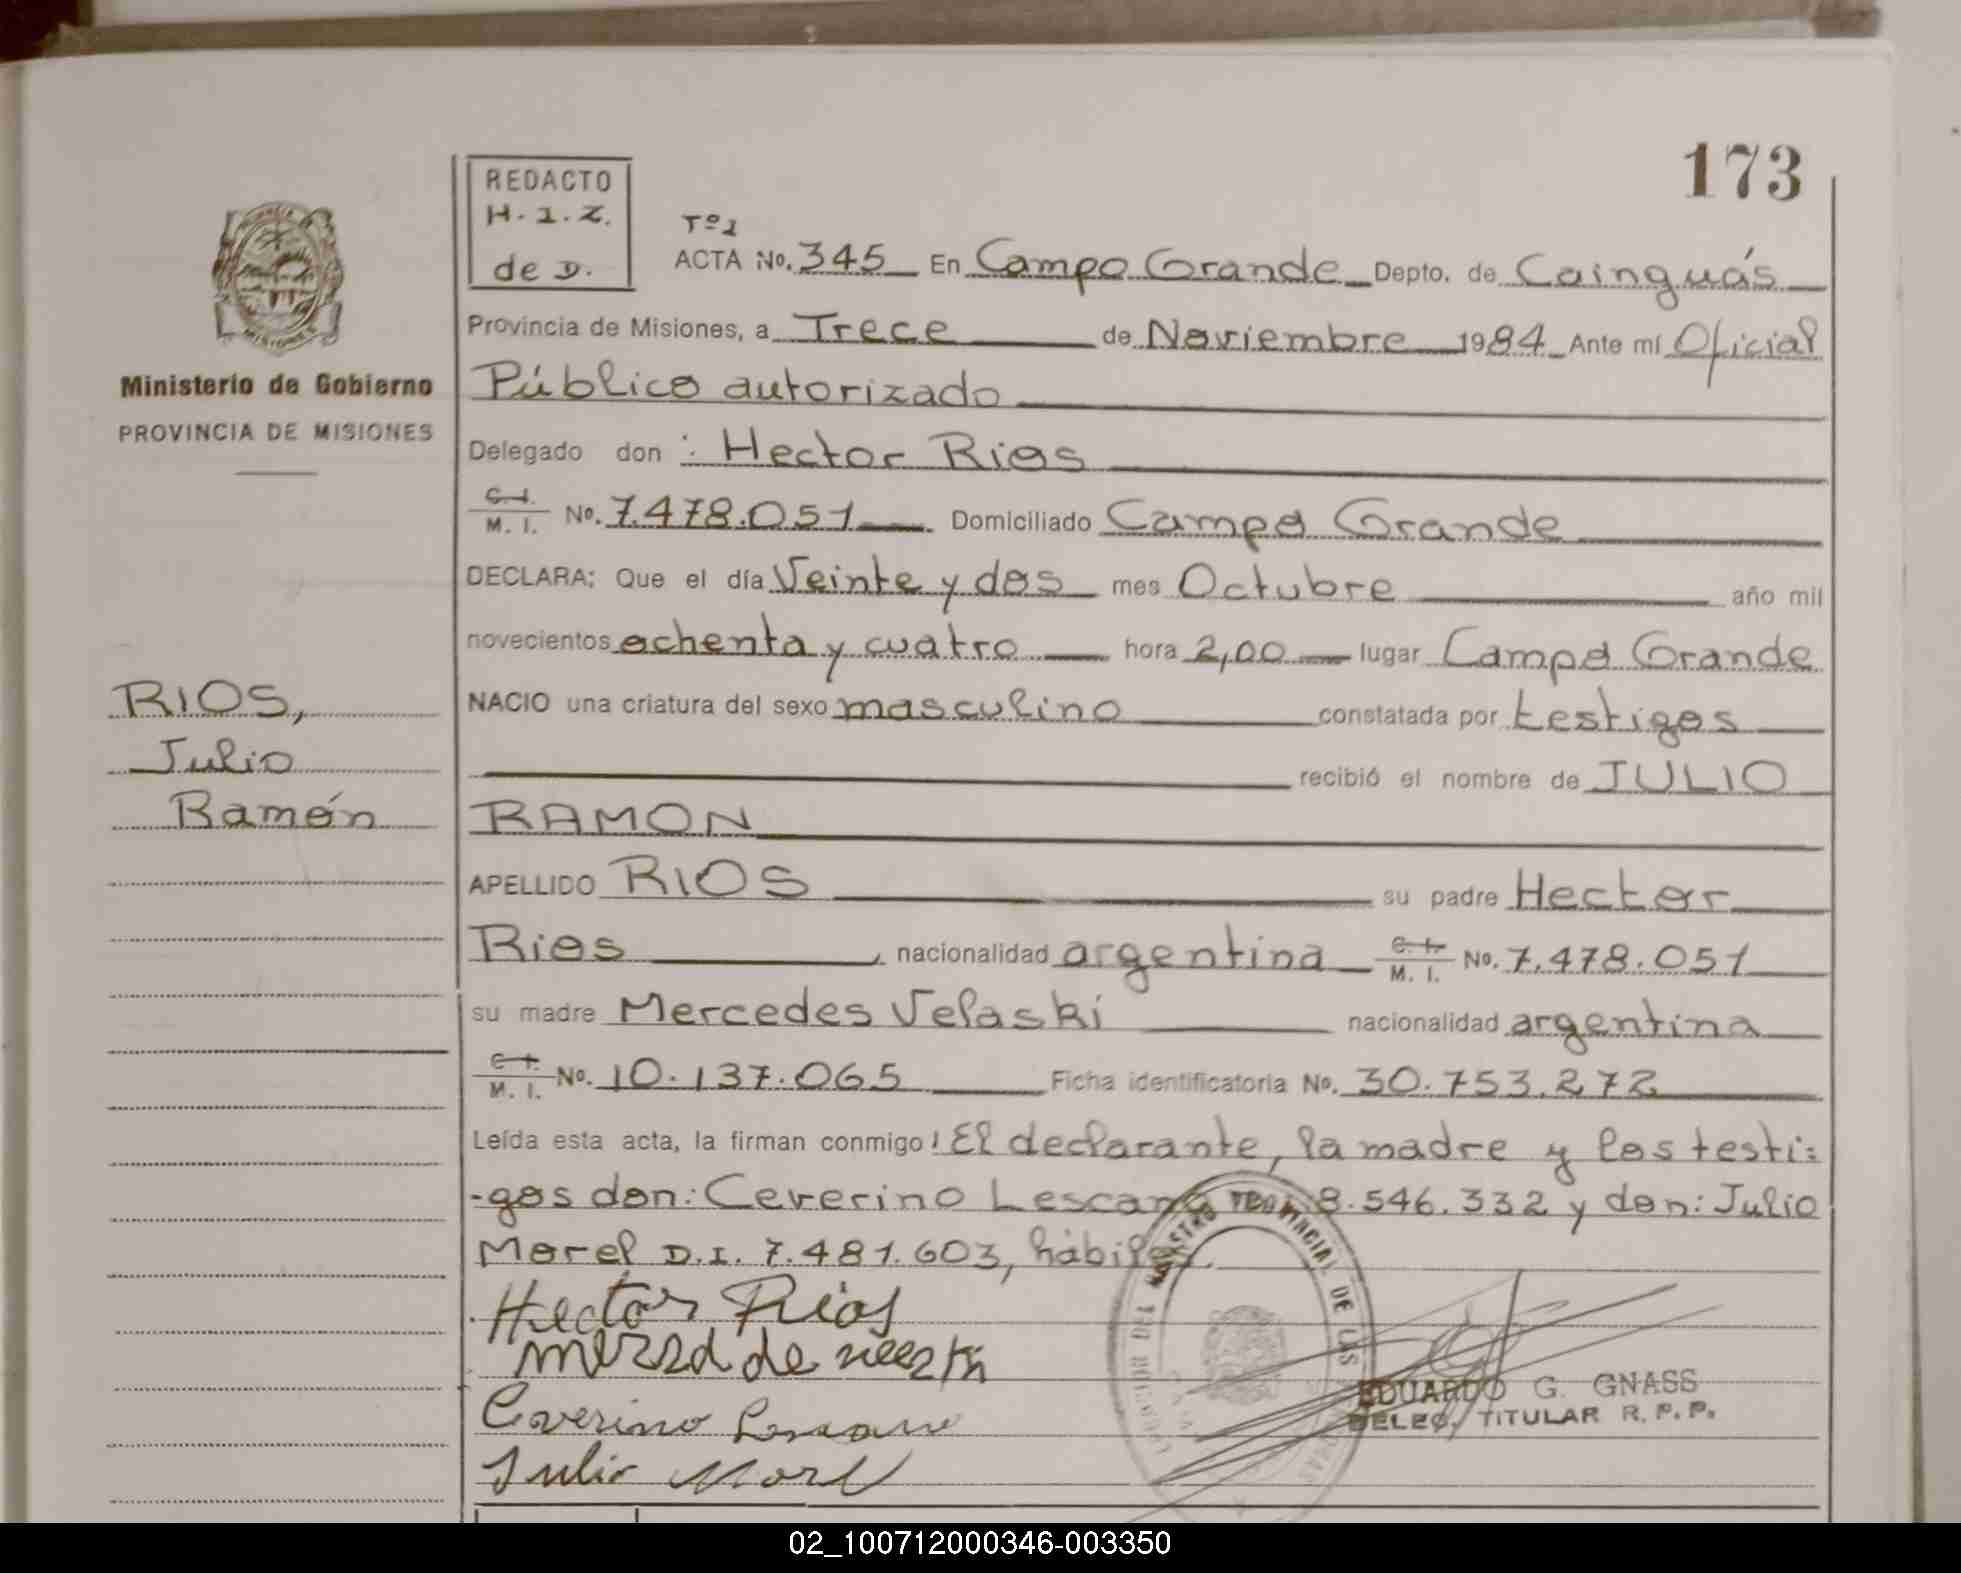 173
REDACTO
H.I.Z.
de D.
Tº1
ACTA No. 345 En Campo Grande Depto. de Cainguás
Provincia de Misiones, a Trece de Noviembre 1984 Ante mí Oficial
Público autorizado
Delegado don : Hector Rios
C.I. M. I. No. 7.478.051 Domiciliado Campo Grande
DECLARA: Que el día Veinte y dos mes Octubre año mil
novecientos ochenta y cuatro hora 2,00 lugar Campo Grande
NACIO una criatura del sexo masculino constatada por testigos
recibió el nombre de JULIO
RAMON
APELLIDO RIOS su padre Hector
Rios, nacionalidad argentina C.I. M. I. No. 7.478.051
su madre Mercedes Velaski nacionalidad argentina
C.I. M. I. No. 10.137.065 Ficha identificatoria No. 30.753.272
Leída esta acta, la firman conmigo: El declarante, la madre y los testi-
-gos don: Ceverino Lescano 8.546.332 y don: Julio
Morel D.I. 7.481.603, hábiles.
Hector Rios
Ceverino Lescano
Julio Morel
Ministerio de Gobierno
PROVINCIA DE MISIONES
RIOS,
Julio
Ramón
MISIONES
PROVINCIAL DE LAS
EDUARDO G. GNASS
DELEG. TITULAR R.P.P.
02_100712000346-003350